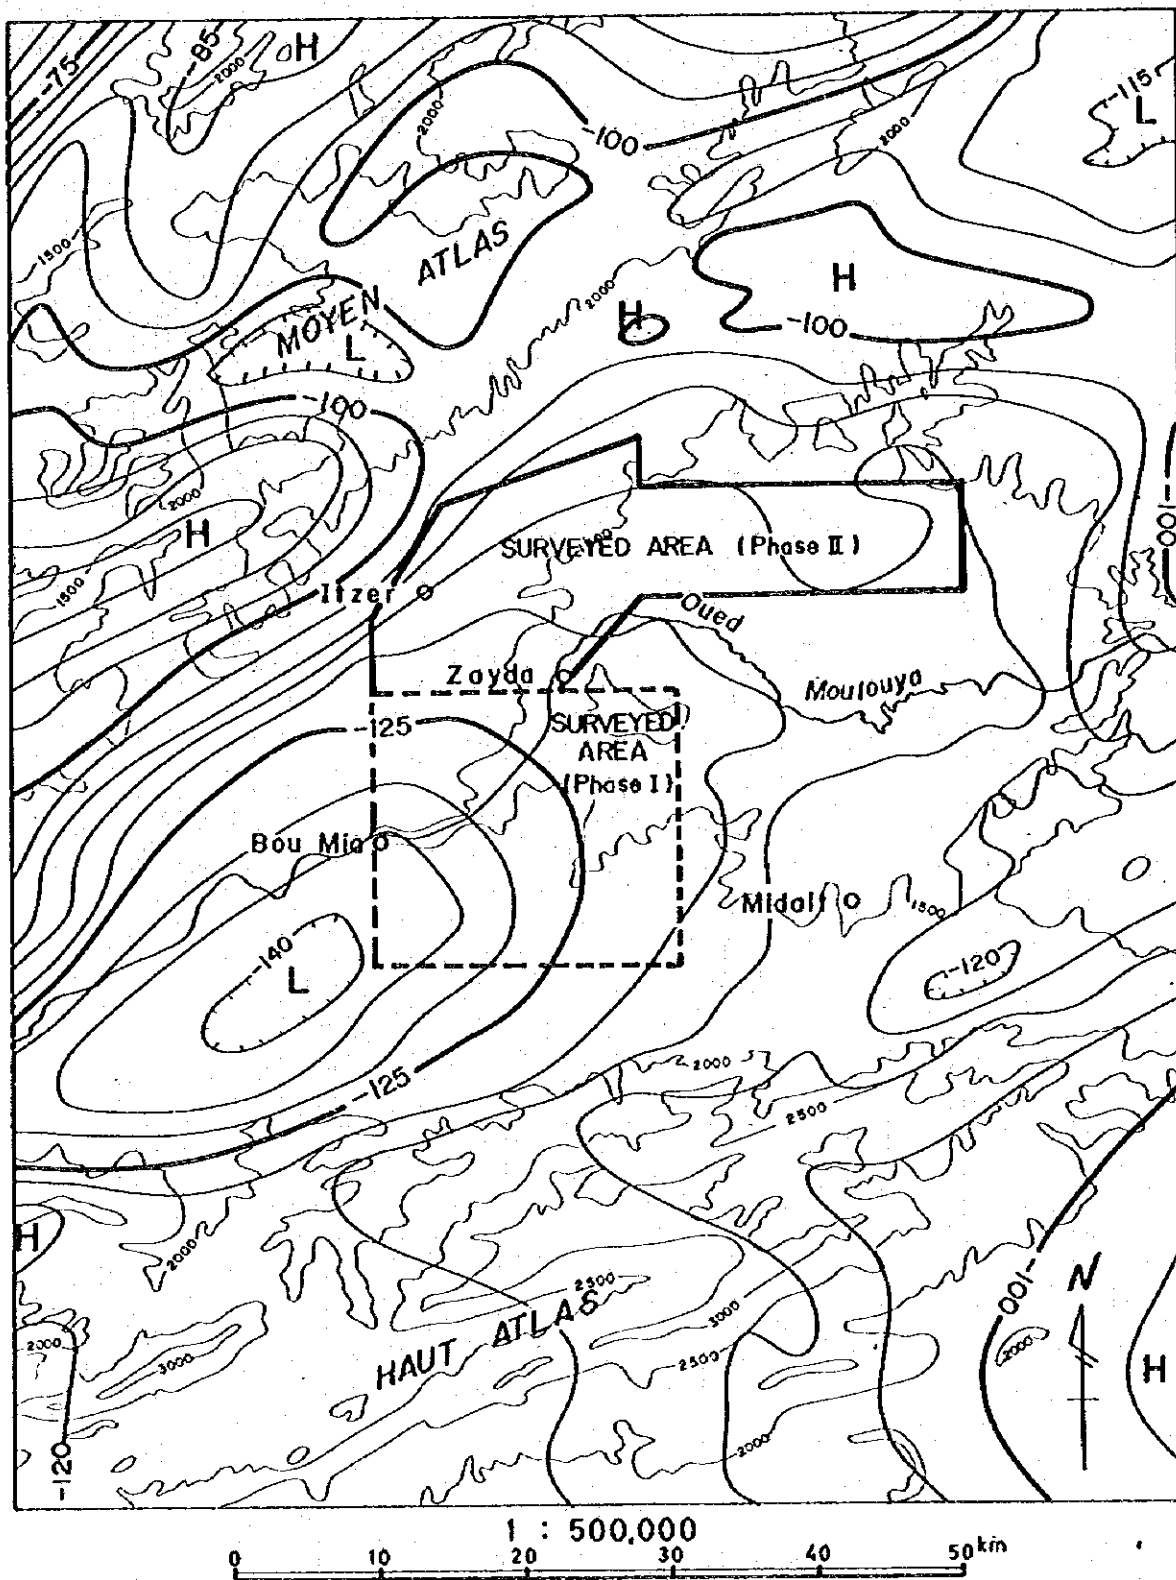 -75
-85
2000
H
-115
L
2000
-100
2000
1500
ATLAS
2000
H
H
MOYEN
L
-100
-100
2000
H
-100
SURVEYED AREA (Phase II)
1500
Itzer
Oued
Zayda
Moulouya
-125
SURVEYED
AREA
(Phase I)
Bou Mia
Midalt
1500
-140
L
-120
2000
-125
2500
H
2000
-100
N
2500
HAUT ATLAS
3000
2000
3000
2500
2000
H
-120
2000
1 : 500,000
0 10 20 30 40 50 km